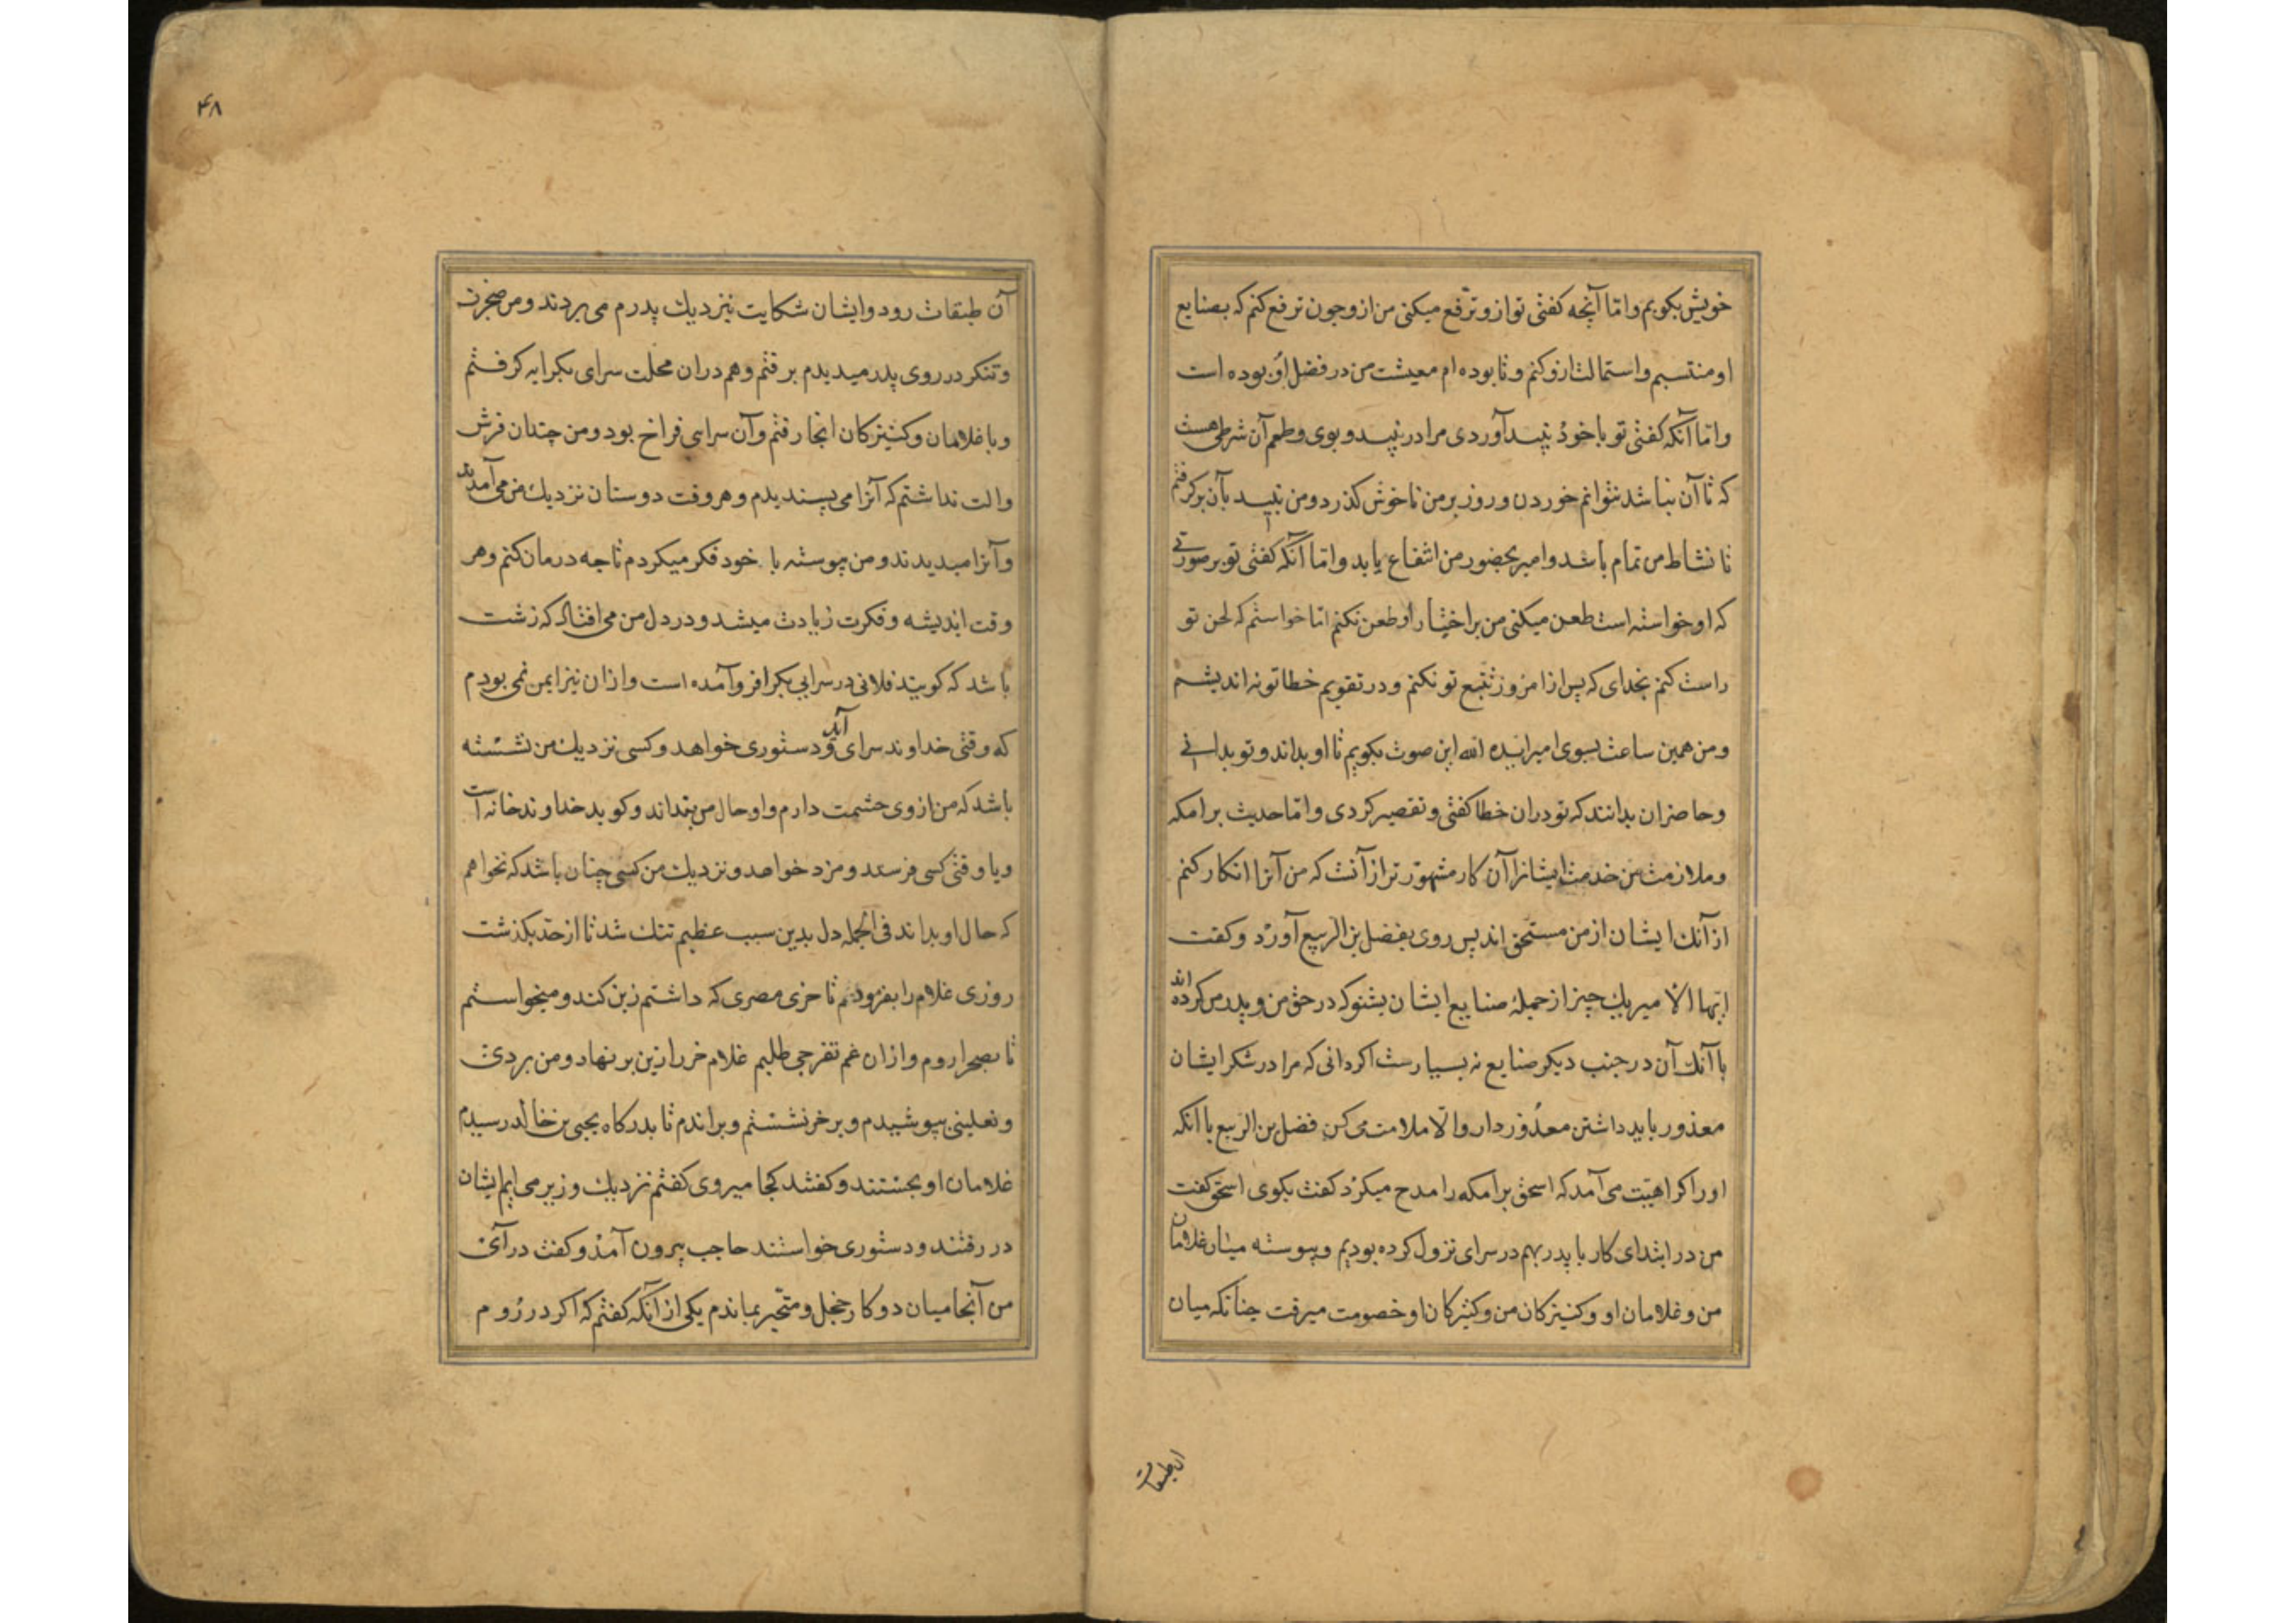 خویش بکویم واما آنچه کفتی تو ازو ترفع میکنی من ازو چون ترفع کنم که بصنایع
او منتسبم و استمالت ازو کنم و تا بوده ام معیشت من در فضل او بوده است
واما آنکه کفتی تو با خود نبید آوردی مرا در نبید و بوی و طعم آن شرطی هست
که تا آن نباشد نتوانم خوردن و روز بر من ناخوش کذرد و من نبید بآن برکرفتم
تا نشاط من تمام باشد و امیر بحضور من انتفاع یابد واما آنکه کفتی تو بر صورتی
که او خواسته است طعن میکنی من بر اختیار او طعن نکنم اما خواستم که لحن تو
راست کنم بخدای که پس از امروز تتبع تو نکنم و در تقویم خطا تو نه اندیشم
ومن همین ساعت بسوی امیر ایده الله این صوت بکویم تا او بداند و تو بدانی
وحاضران بدانند که تو دران خطا کفتی و تقصیر کردی واما حدیث برامکه
وملازمت من خدمت ایشانرا آن کار مشهورتر از آنست که من آنرا انکار کنم
از آنک ایشان از من مستحق اند پس روی بفضل بن الربیع آورد و کفت
ایها الامیر یک چیز از جملهٔ صنایع ایشان بشنو که در حق من و پدر من کرده اند
با آنک آن در جنب دیکر صنایع نه بسیارست اکر دانی که مرا در شکر ایشان
معذور باید داشتن معذور دار والا ملامت می کن فضل بن الربیع با آنکه
اورا کراهیت می آمد که اسحق برامکه را مدح میکرد کفت بکوی اسحق کفت
من در ابتدای کار با پدر بهم در سرای نزول کرده بودیم و پیوسته میان غلامان
من و غلامان او و کنیزکان من و کنیزکان او خصومت میرفت چنانکه میان
ان طبقات
۴۸
آن طبقات رود و ایشان شکایت نیز دیک پدرم می بردند و من ضجرت
وتنکر در روی پدر میدیدم برفتم و هم دران محلت سرای بکرایه کرفتم
وبا غلامان و کنیزکان انجا رفتم و آن سرای فراخ بود و من چندان فرش
والت نداشتم که آنرا می پسندیدم و هر وقت دوستان نزدیک من می آمدند
وآنرا میدیدند و من پیوسته با خود فکر میکردم تا چه درمان کنم و هر
وقت اندیشه و فکرت زیادت میشد و در دل من می افتاد که زشت
باشد که کویند فلانی در سرایی بکرا فرو آمده است و ازان نیز ایمن نمی بودم
که وقتی خداوند سرای آید و دستوری خواهد و کسی نزدیک من نشسته
باشد که من از وی حشمت دارم و او حال من بنداند و کوید خداوند خانه است
ویا وقتی کسی فرستد و مزد خواهد و نزدیک من کسی چنان باشد که نخواهم
که حال او بداند فی الجمله دل بدین سبب عظیم تنک شد تا از حد بکذشت
روزی غلام را بفرمودم تا خری مصری که داشتم زین کند و میخواستم
تا بصحرا روم و ازان غم تفرجی طلبم غلام خر را زین بر نهاد و من بردی
ونعلینی بپوشیدم و بر خر نشستم و براندم تا بدرکاه یحیی بن خالد رسیدم
غلامان او بجستند و کفتند کجا میروی کفتم نزدیک وزیر می ایم ایشان
در رفتند و دستوری خواستند حاجب بیرون آمد و کفت درآی
من آنجا میان دو کار خجل و متحیر بماندم یکی از آنکه کفتم که اکر در روم